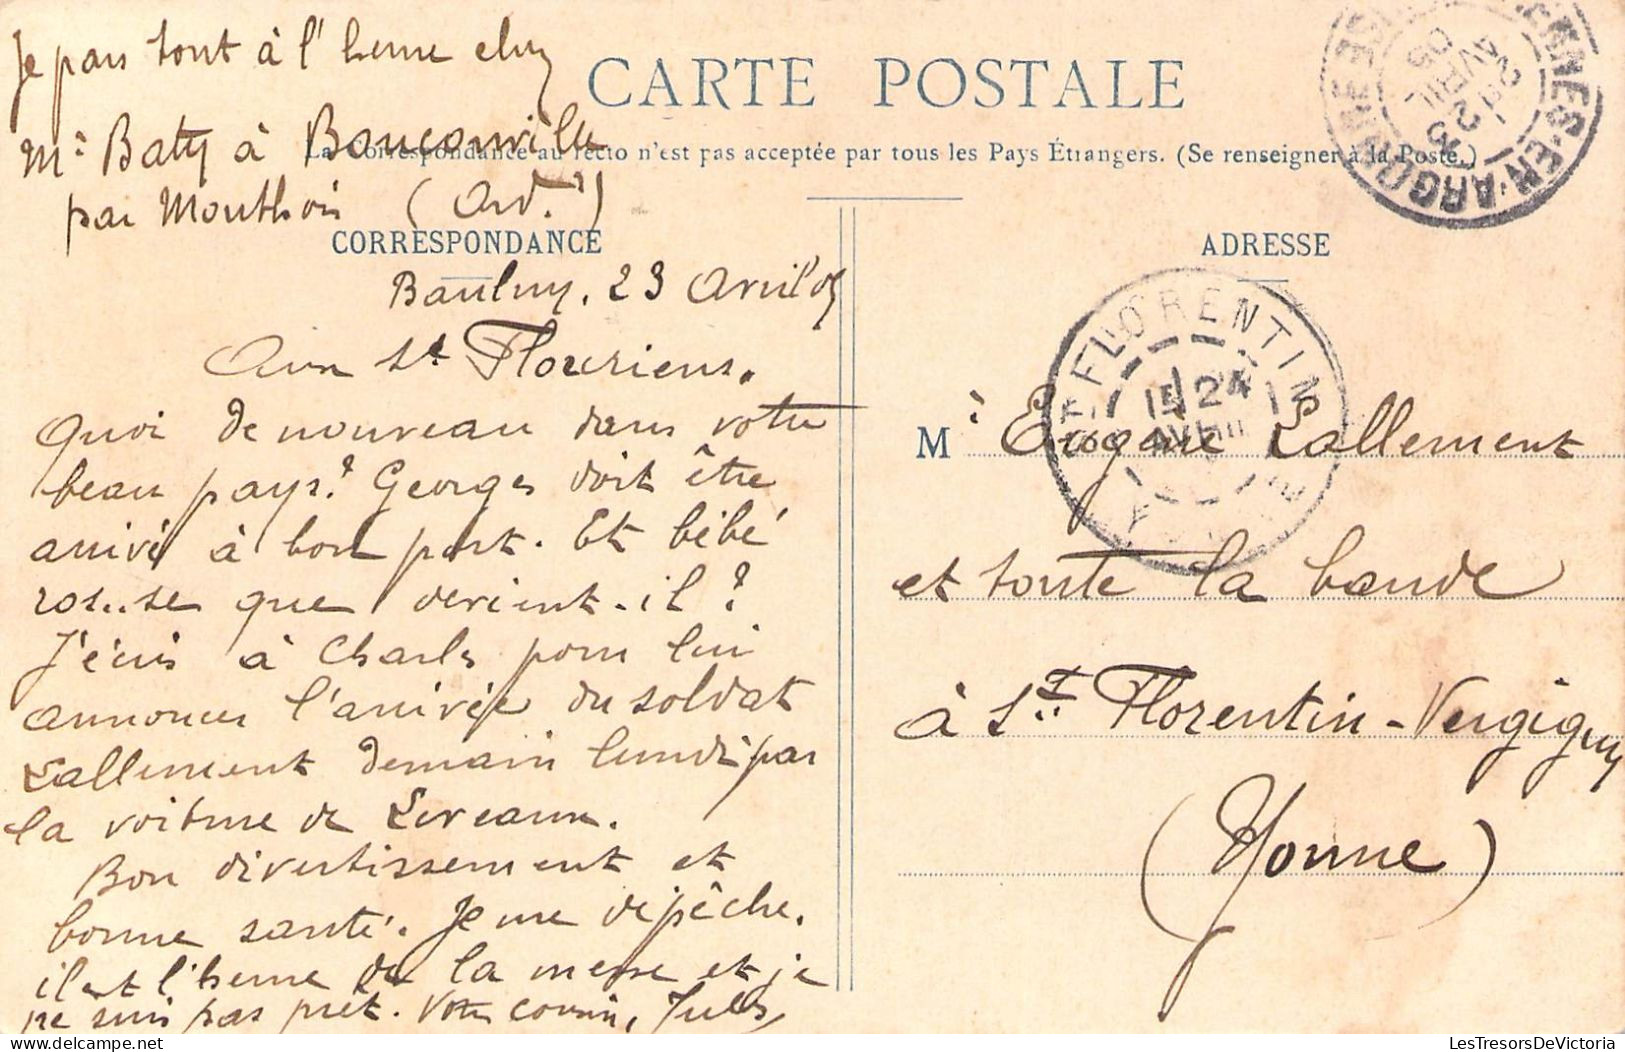 Je pars tout à l'heure chez
Mr Baty à Bouconville
par Monthois (Ard.)
CARTE POSTALE
La Correspondance au recto n'est pas acceptée par tous les Pays Étrangers. (Se renseigner à la Poste.)
CORRESPONDANCE
Baulny, 23 Avril 05
Aux St Flouriens.
Quoi de nouveau dans votre
beau pays? Georges doit être
arrivé à bon port. Et bébé
que devient-il?
J'écris à Charles pour lui
annoncer l'arrivée du soldat
Lallement demain lundi par
la voiture de
Bon divertissement et
bonne santé. Je me dépêche.
il est l'heure de la messe et je
ne suis pas prêt. Votre cousin, Jules
ADRESSE
M Lallement
et toute la bande
à St Florentin-Vergigny
(Yonne)
ST FLORENTIN
24
EN-ARGONNE
23
AVRIL
05
LesTresorsDeVictoria.com